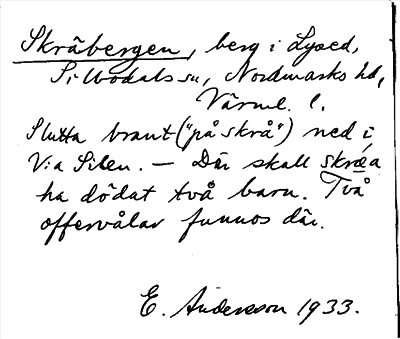 Skråbergen, berg i Lysed,
Silbodals sn, Nordmarks hd,
Värml. l.
Slutta brant ("på skrå") ned i
V:a Silen. — Där skall skråa
ha dödat två barn. Två
offervålar funnos där.
E. Andersson 1933.